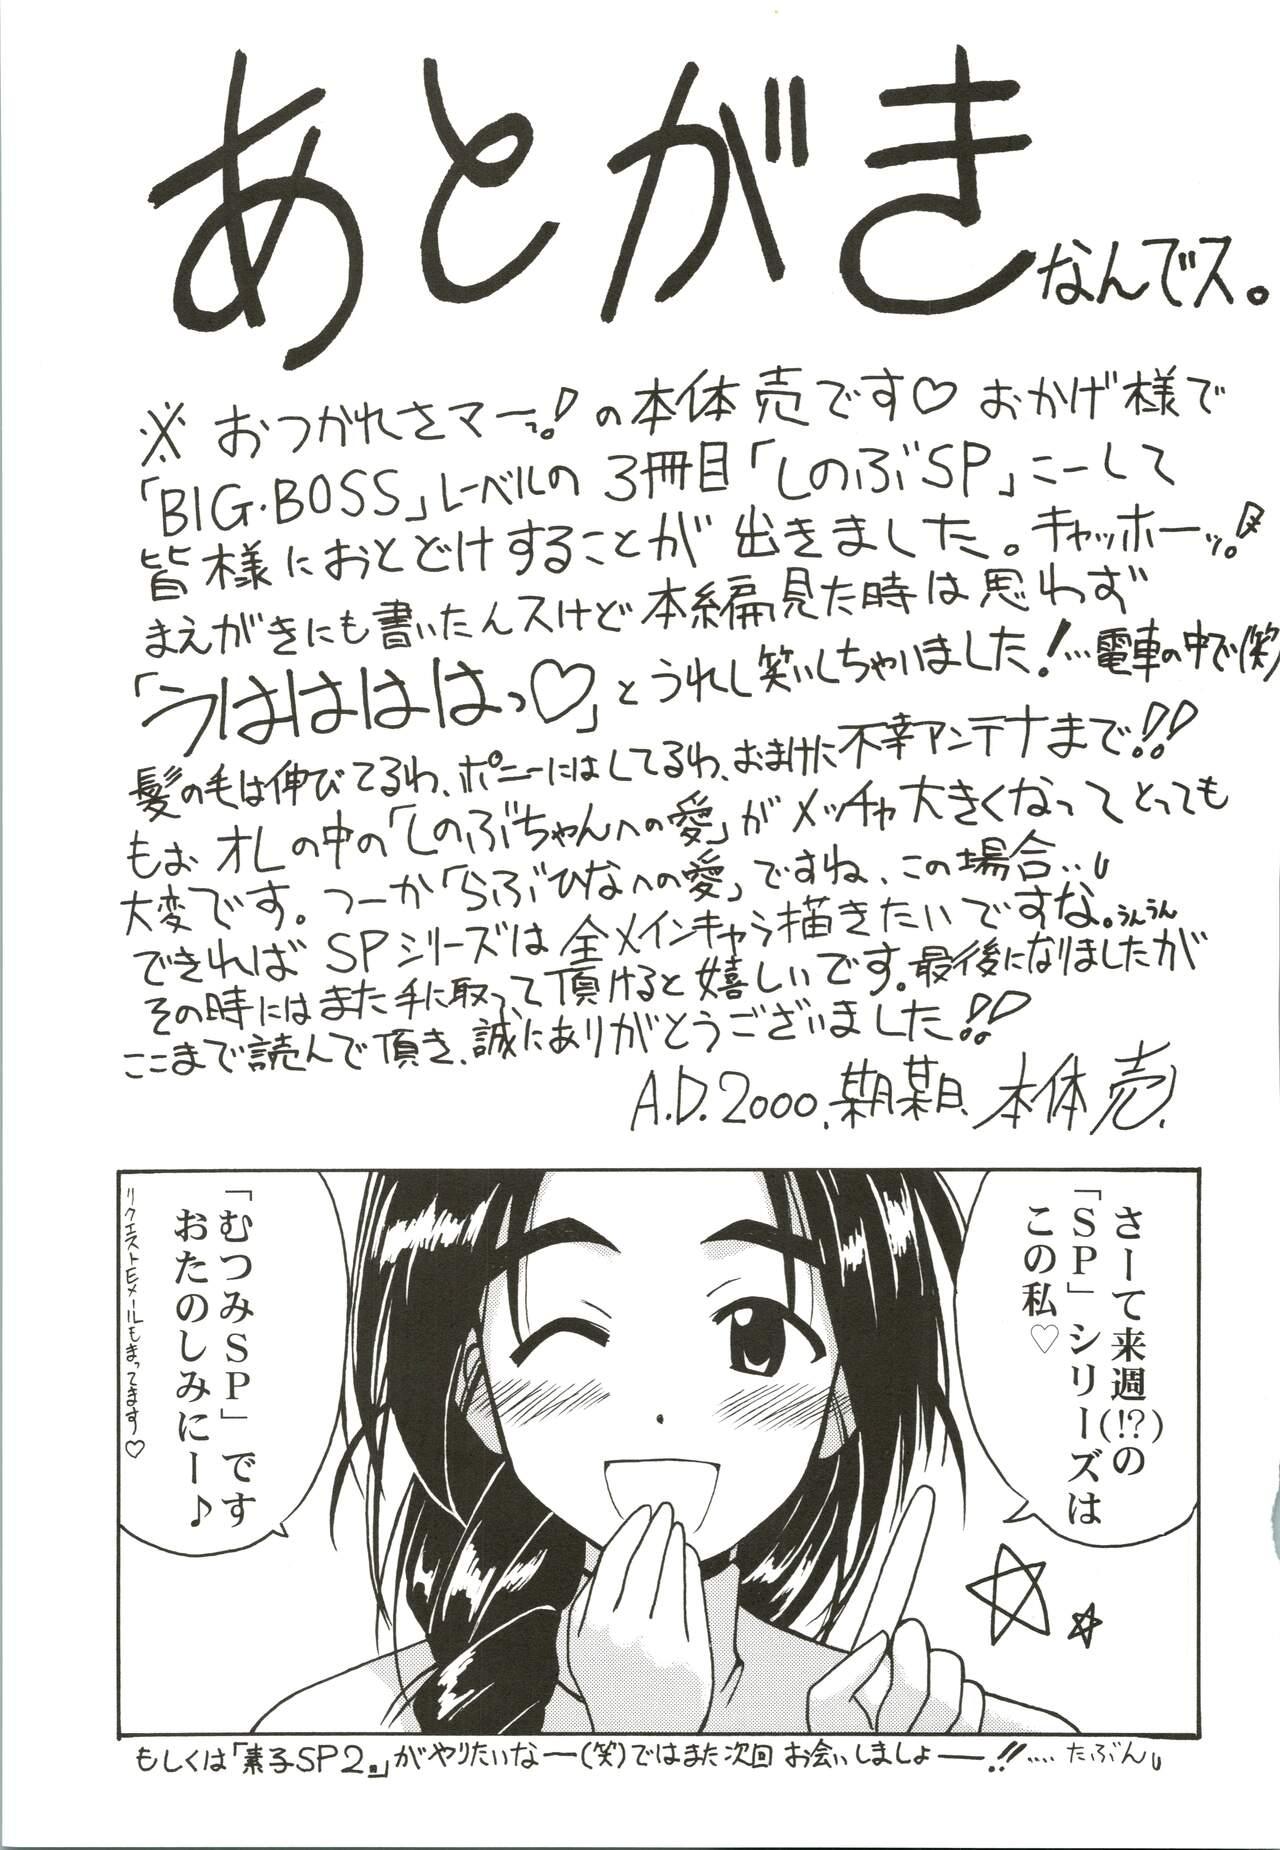 あとがきなんでス。
※おつかれさマーっ!の本体売です♡おかげ様で
「BIG・BOSS」レーベルの3冊目「しのぶSP」こーして
皆様におとどけすることが出きました。キャッホーッ!
まえがきにも書いたんスけど本編見た時は思わず
「うはははっ♡」とうれし笑いしちゃいました!…電車の中で(笑)
髪の毛は伸びてるわ、ポニーにはしてるわ、おまけに不幸アンテナまで!!
もぉオレの中の「しのぶちゃんへの愛」がメッチャ大きくなってとっても
大変です。つーか「らぶひなへの愛」ですね、この場合…
できれば SPシリーズは全メインキャラ描きたいですな。うんうん
その時にはまた手に取って頂けると嬉しいです。最後になりましたが
ここまで読んで頂き、誠にありがとうございました!!
A.D.2000.某月某日、本体売.
さーて来週(!?)の
「SP」シリーズは
この私♡
「むつみSP」です
おたのしみにー♪
リクエストEメールもまってます♡
もしくは「素子SP2。」がやりたいなー(笑)ではまた次回お会いしましょー!!……たぶん